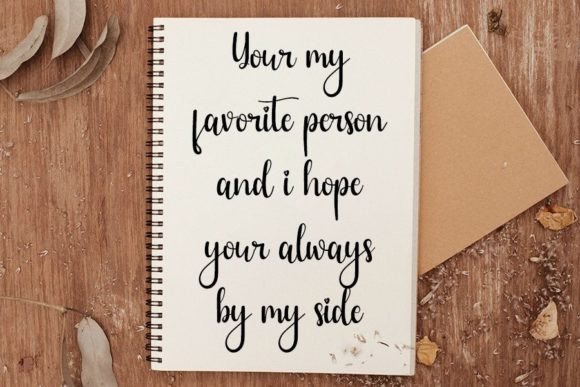 Your my
favorite person
and i hope
your always
by my side